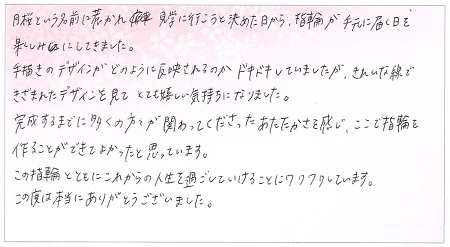 月桜という名前に惹かれ 見学に行こうと決めた日から、指輪が手元に届く日を
楽しみにしてきました。
手描きのデザインがどのように反映されるのかドキドキしていましたが、きれいな線で
きざまれたデザインを見てとても嬉しい気持ちになりました。
完成するまでに多くの方々が関わってくださったあたたかさを感じ、ここで指輪を
作ることができてよかったと思っています。
この指輪とともにこれからの人生を過ごしていけることにワクワクしています。
この度は本当にありがとうございました。